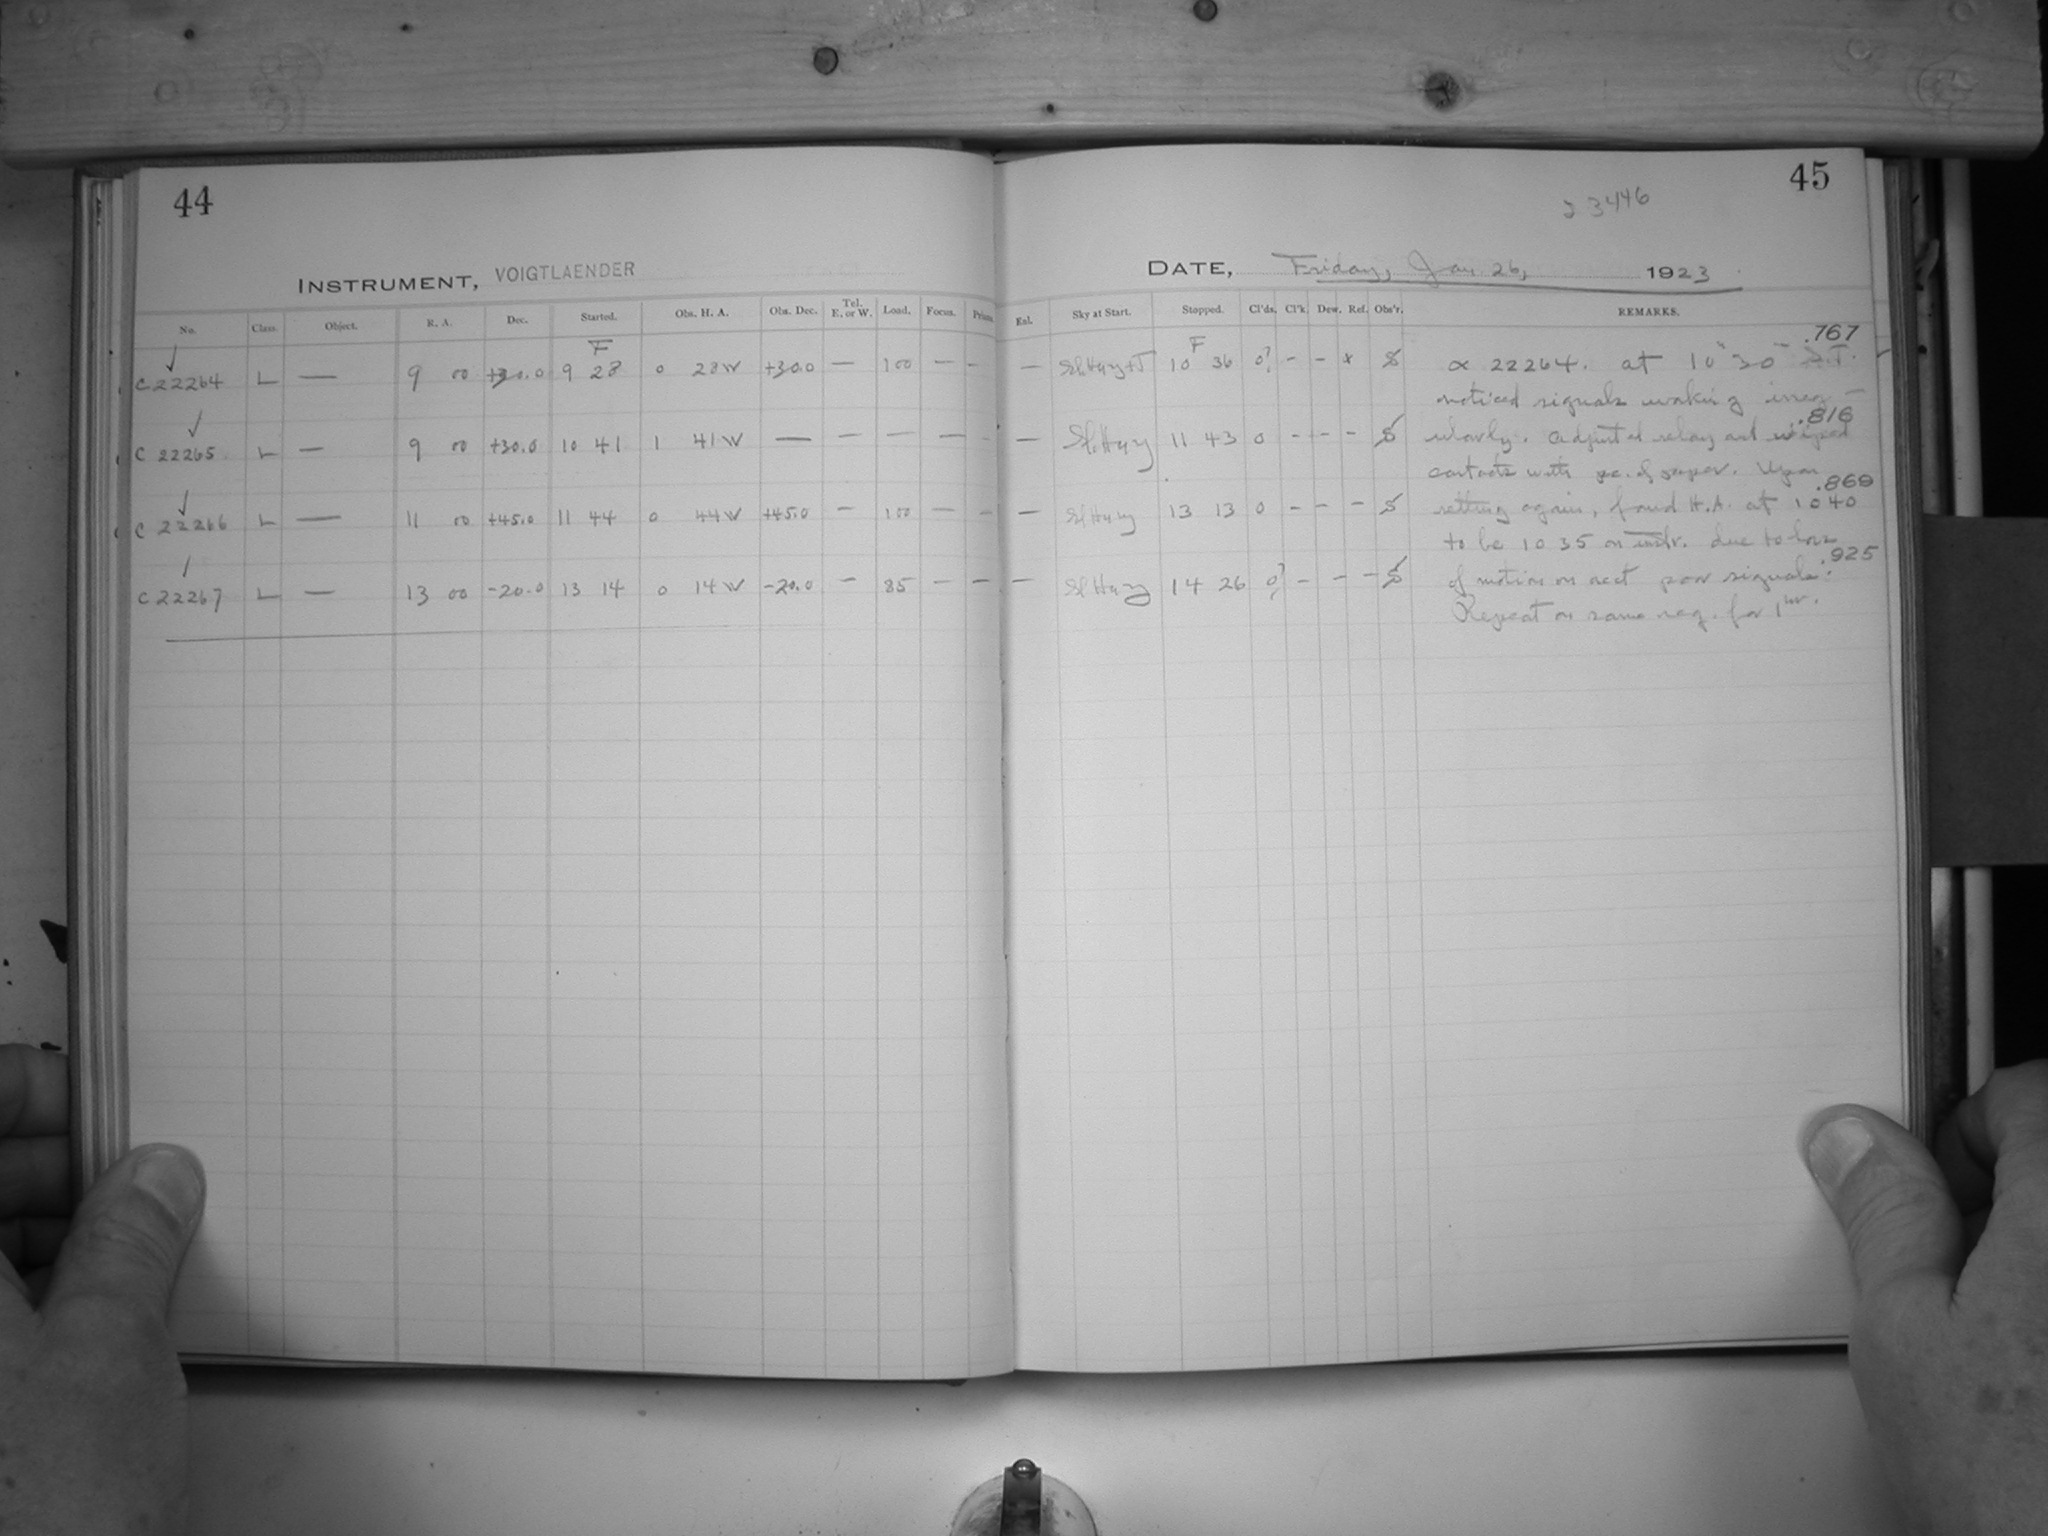 44
INSTRUMENT, VOIGTLAENDER
No. Class. Object. R. A. Dec. Started. Obs. H. A. Obs. Dec. Tel. E. or W. Load. Focus. Prism.
F
C 22264 L — 9 00 +30.0 9 28 0 28 W +30.0 — 100 — -
C 22265 L — 9 00 +30.0 10 41 1 41 W — — — — -
C 22266 L — 11 00 +45.0 11 44 0 44 W +45.0 — 100 — -
C 22267 L — 13 00 -20.0 13 14 0 14 W -20.0 — 85 — —
45
23446
DATE, Friday, Jan 26, 1923
Exl. Sky at Start. Stopped. Cl'ds. Cl'k. Dew. Ref. Obs'r. REMARKS.
F
— Sl. Hazy 10 36 0? - - x
— Sl. Hazy 11 43 0 - - -
— Sl Hazy 13 13 0 - - -
— Sl Hazy 14 26 0? - - -
.767
α 22264. at 10 30 S.T.
noticed signals making irreg-
.816
ularly. Adjusted relay and wiped
contacts with pc. of paper. Upon
.869
setting again, found H.A. at 10 40
to be 10 35 on instr. due to loss
.925
of motion on acct poor signals.
Repeat on same reg. for 1 hr.